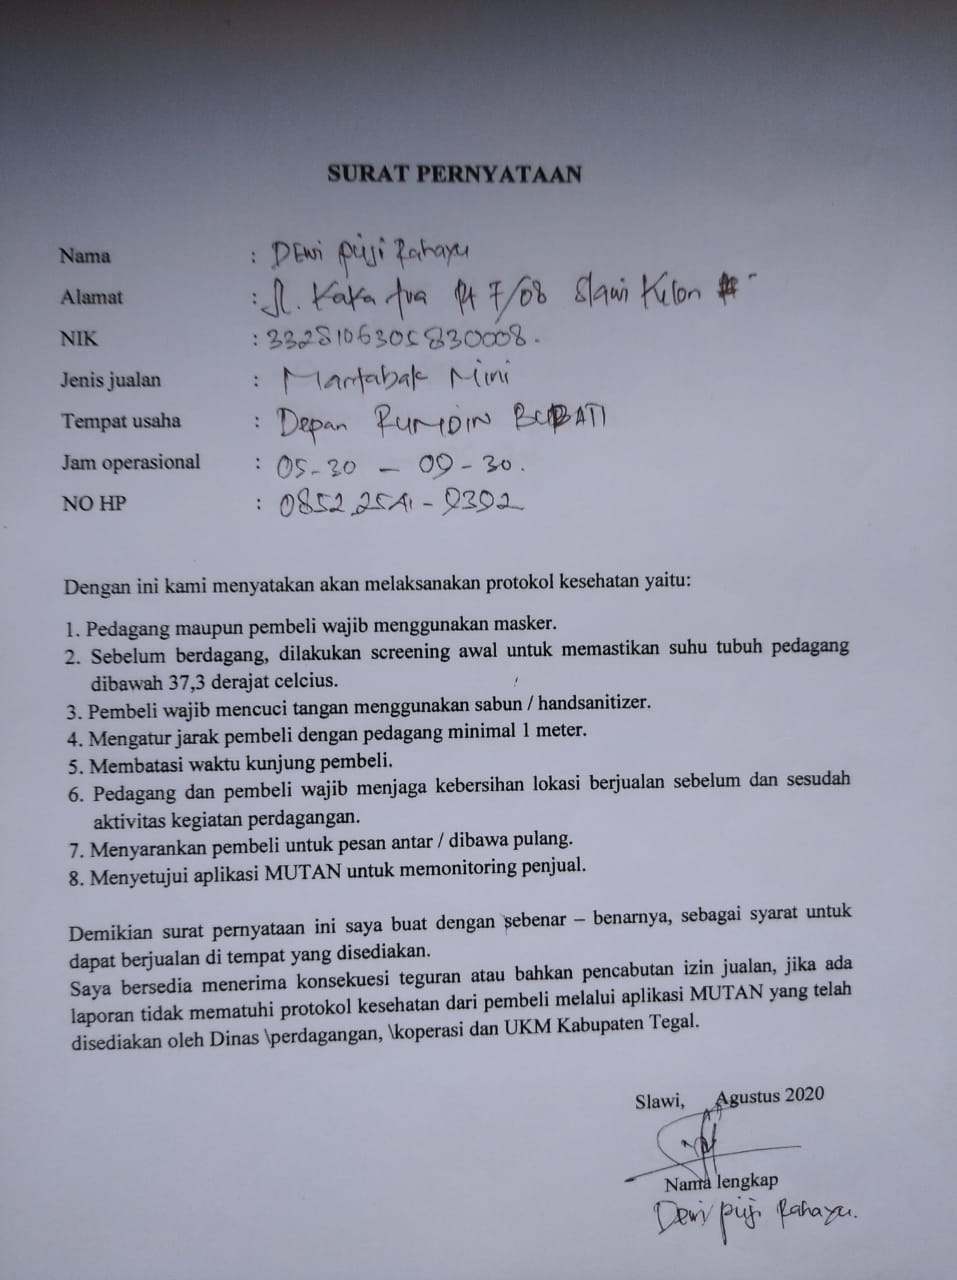 SURAT PERNYATAAN
Nama : DEWI PUJI Rahayu
Alamat : Jl. Kaka tua Rt 7/08 Slawi Kulon
NIK : 3328106305830008.
Jenis jualan : Martabak Mini
Tempat usaha : Depan RUMDIN BUPATI
Jam operasional : 05-30 – 09-30.
NO HP : 0852 2541-9392
Dengan ini kami menyatakan akan melaksanakan protokol kesehatan yaitu:
1. Pedagang maupun pembeli wajib menggunakan masker.
2. Sebelum berdagang, dilakukan screening awal untuk memastikan suhu tubuh pedagang
dibawah 37,3 derajat celcius.
3. Pembeli wajib mencuci tangan menggunakan sabun / handsanitizer.
4. Mengatur jarak pembeli dengan pedagang minimal 1 meter.
5. Membatasi waktu kunjung pembeli.
6. Pedagang dan pembeli wajib menjaga kebersihan lokasi berjualan sebelum dan sesudah
aktivitas kegiatan perdagangan.
7. Menyarankan pembeli untuk pesan antar / dibawa pulang.
8. Menyetujui aplikasi MUTAN untuk memonitoring penjual.
Demikian surat pernyataan ini saya buat dengan sebenar – benarnya, sebagai syarat untuk
dapat berjualan di tempat yang disediakan.
Saya bersedia menerima konsekuesi teguran atau bahkan pencabutan izin jualan, jika ada
laporan tidak mematuhi protokol kesehatan dari pembeli melalui aplikasi MUTAN yang telah
disediakan oleh Dinas \perdagangan, \koperasi dan UKM Kabupaten Tegal.
Slawi, Agustus 2020
Nama lengkap
Dewi puji Rahayu.